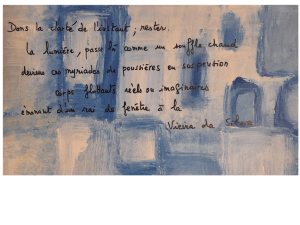 Dans la clarté de l'instant, rester.
la lumière, passe là comme un souffle chaud
devenu ces myriades de poussières en suspension
corps flottants réels ou imaginaires
émanant d'un rai de fenêtre à la
Vieira da Silva